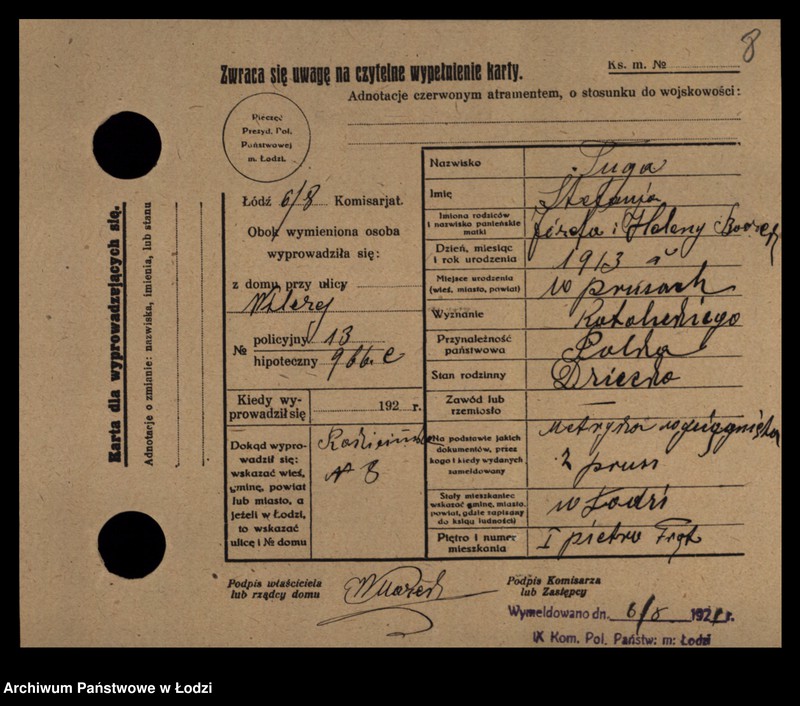 8
Zwraca się uwagę na czytelne wypełnienie karty.
Ks. m. №
Adnotacje czerwonym atramentem, o stosunku do wojskowości:
Pieczęć
Prezyd. Pol.
Państwowej
m. Łodzi.
Karta dla wyprowadzających się.
Adnotacje o zmianie: nazwiska, imienia, lub stanu
Łódź 6/8 Komisarjat.
Obok wymieniona osoba
wyprowadziła się:
z domu, przy ulicy
№ policyjny 13
hipoteczny 966 c
Kiedy wyprowadził się 192 r.
Dokąd wyprowadził się:
wskazać wieś,
gminę, powiat
lub miasto, a
jeżeli w Łodzi,
to wskazać
ulicę i № domu
№ 8
Nazwisko
Imię Stefanja
Imiona rodziców
i nazwisko panieńskie
matki
Józefa i Heleny
Dzień, miesiąc
i rok urodzenia
1913 r
Miejsce urodzenia
(wieś, miasto, powiat)
w prusach
Wyznanie
Przynależność
państwowa
Polska
Stan rodzinny
Zawód lub
rzemiosło
—
Na podstawie jakich
dokumentów, przez
kogo i kiedy wydanych
zameldowany
Metryka
z prus
Stały mieszkaniec
wskazać gminę, miasto,
powiat, gdzie zapisany
do ksiąg ludności)
w Łodzi
Piętro i numer
mieszkania
I piętro
Podpis właściciela
lub rządcy domu
Podpis Komisarza
lub Zastępcy
Wymeldowano dn. 6/8 192 r.
IX Kom. Pol. Państw: m: Łodzi
Archiwum Państwowe w Łodzi